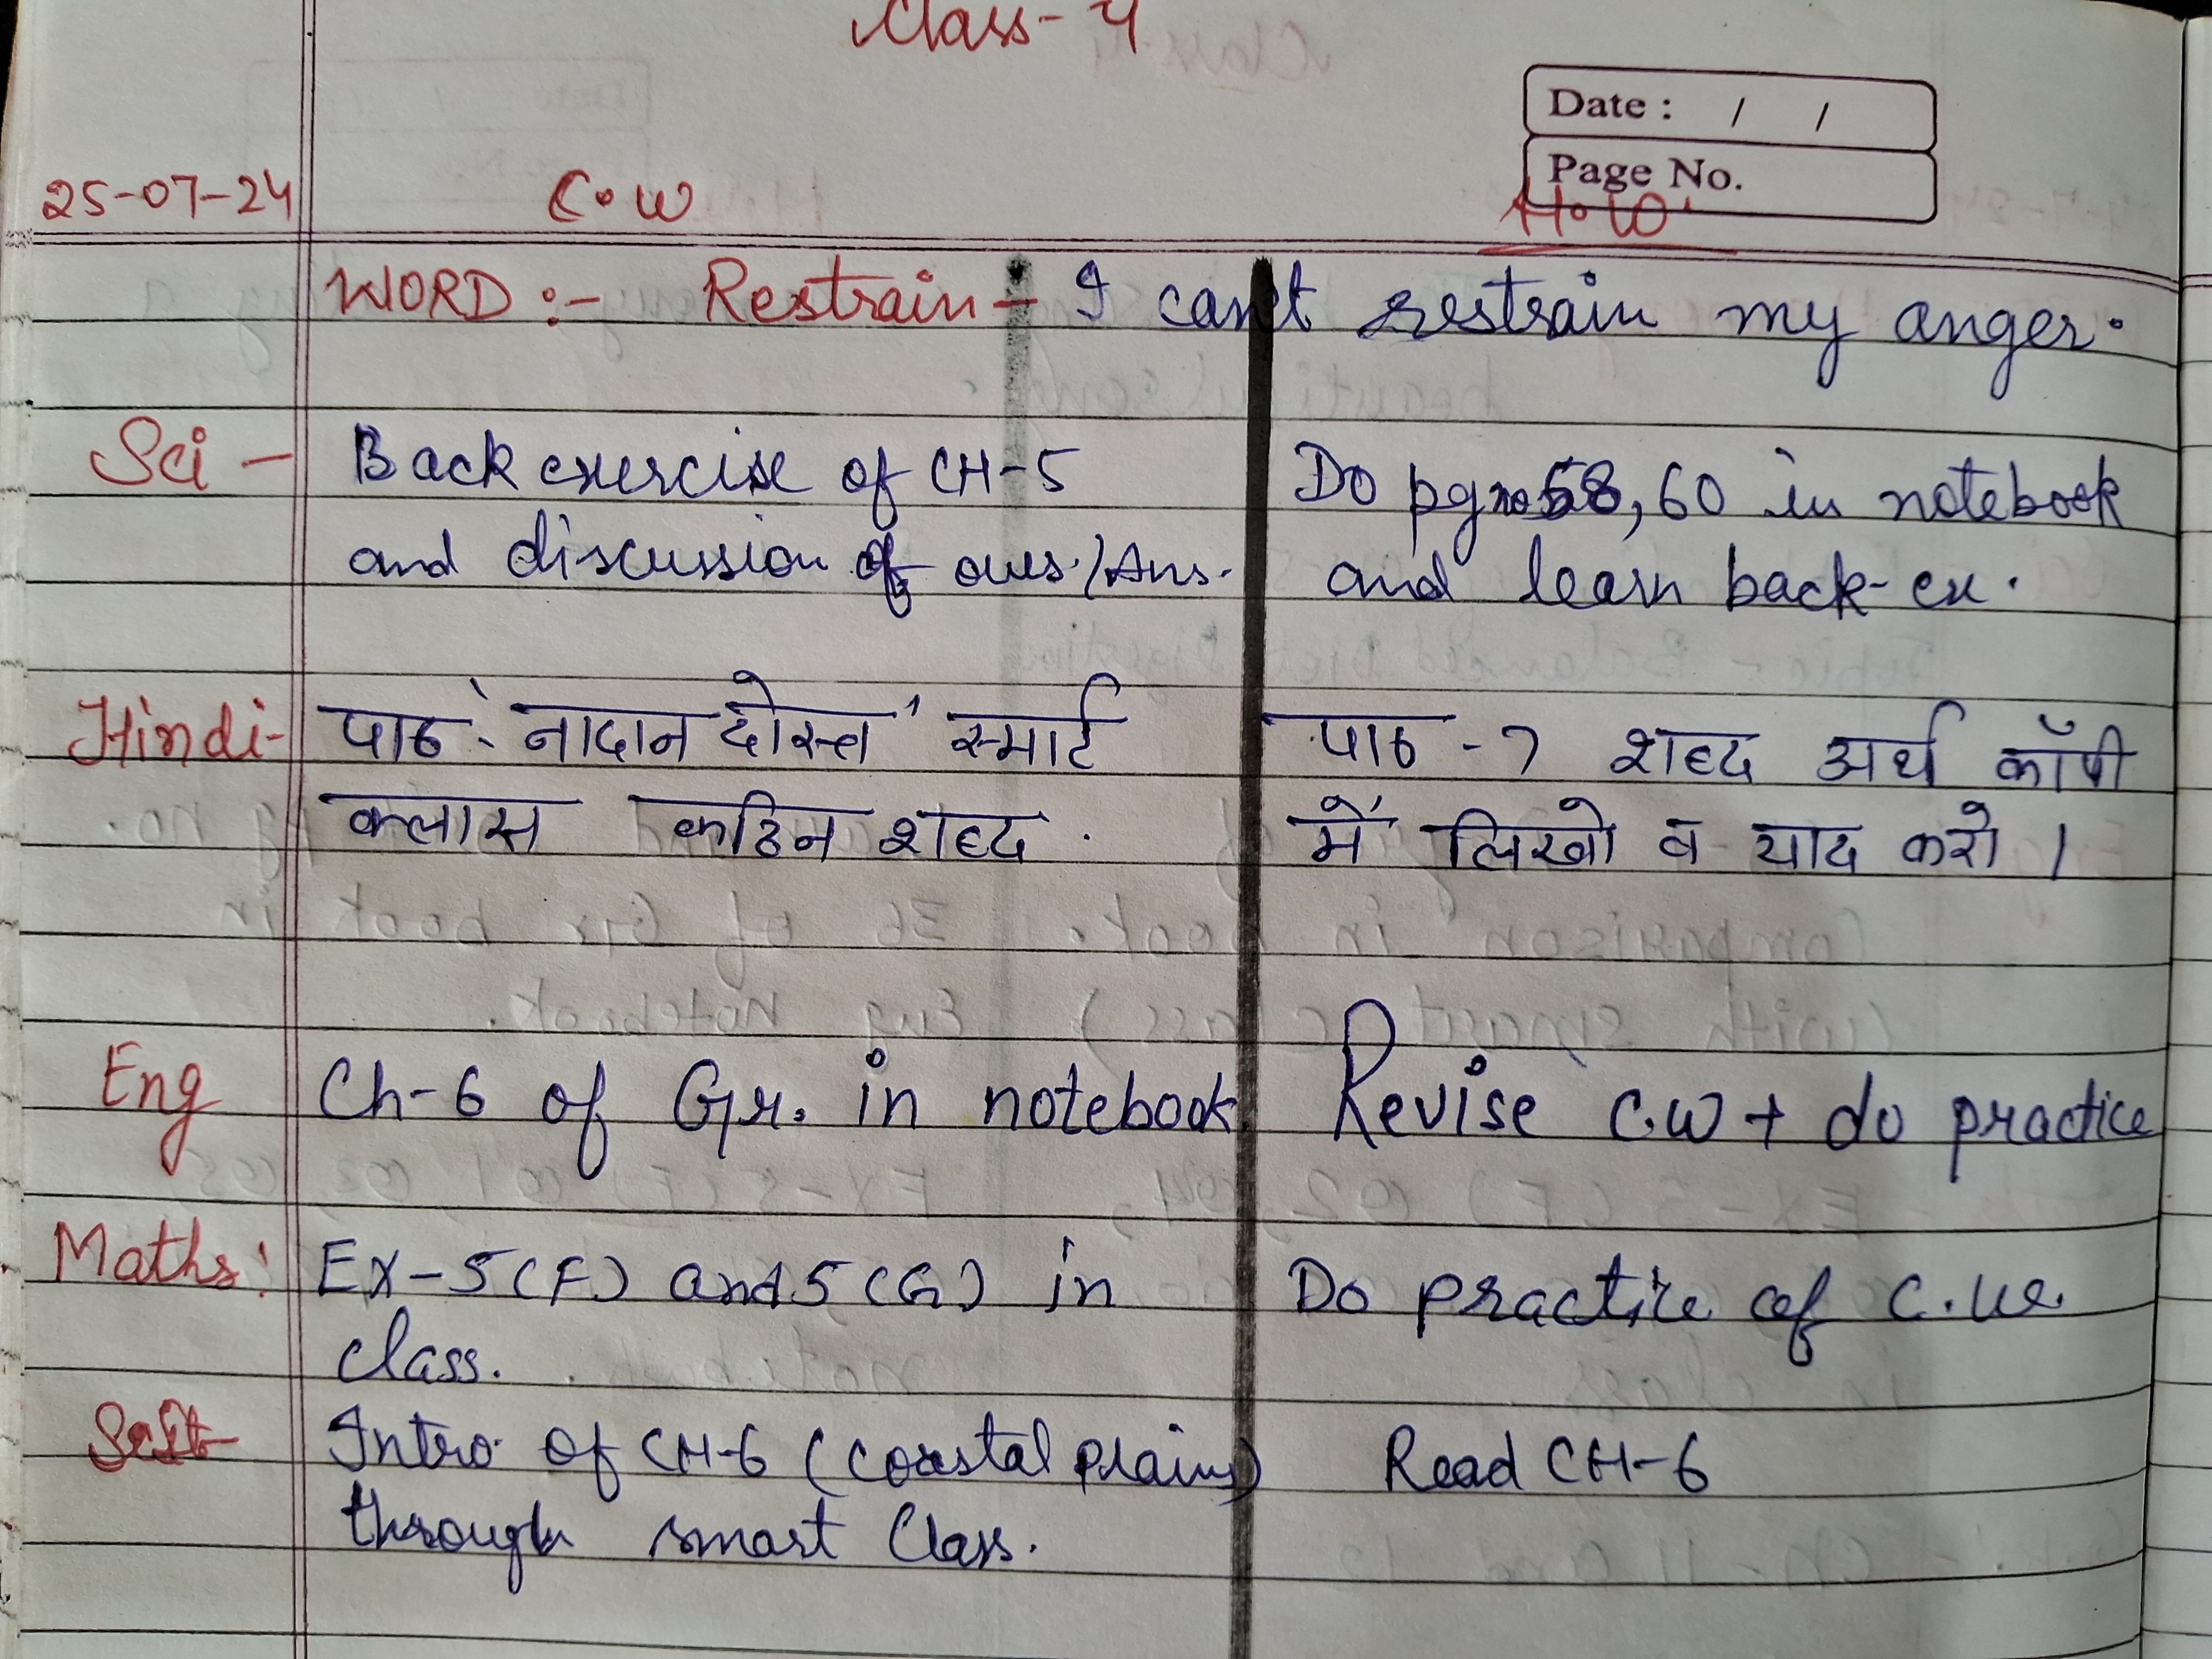 Class-4
Date : / /
Page No.
25-07-24 C.W H.W
WORD :- Restrain - I can't restrain my anger.
Sci - Back exercise of CH-5 Do pg no 58, 60 in notebook
and discussion of Ques./Ans. and learn back-ex.
Hindi- पाठ 'नादान दोस्त' स्मार्ट पाठ - 7 शब्द अर्थ कॉपी
क्लास कठिन शब्द . में लिखो व याद करो ।
Eng Ch-6 of Gr. in notebook. Revise C.W + do practice
Maths: Ex-5(F) and 5(G) in Do practice of C.W.
class.
Intro of CH-6 (Coastal plains) Read CH-6
through smart Class.